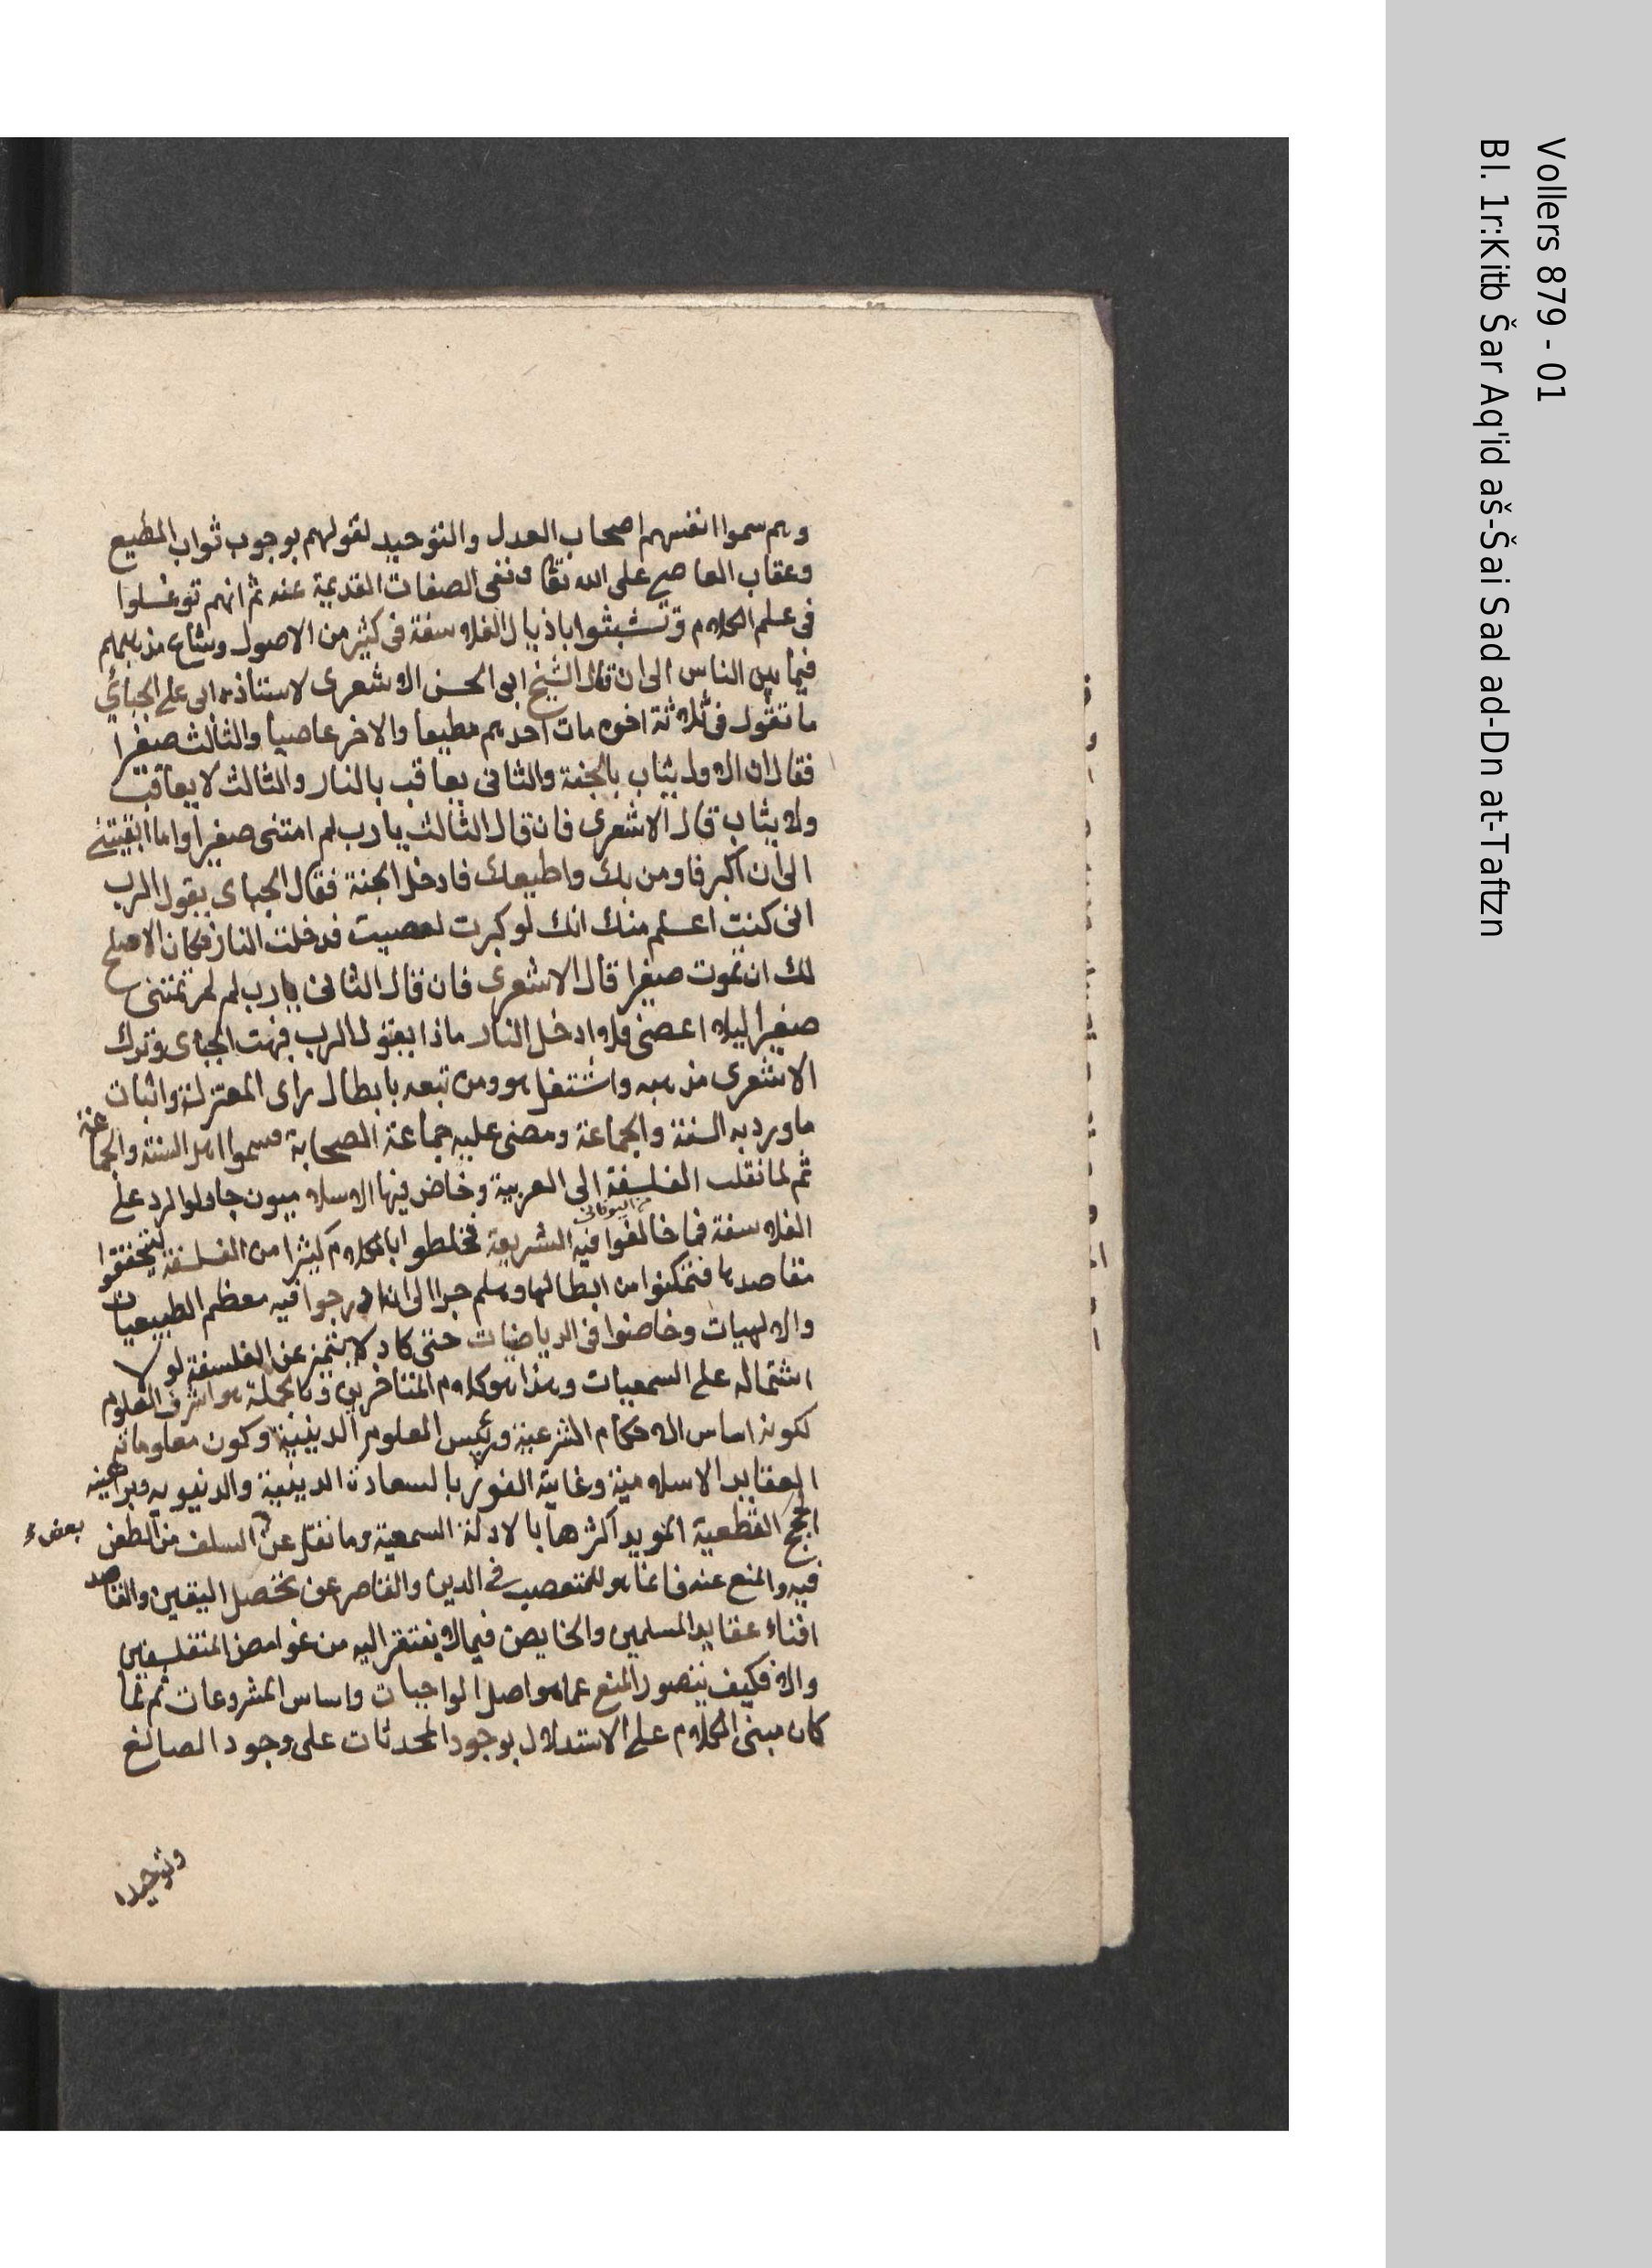 وهم سموا انفسهم اصحاب العدل والتوحيد لقولهم بوجوب ثواب المطيع
وعقاب العاصي على الله تعا ونفى الصفات القديمة عنه ثم انهم توغسلوا
فى علم الكلام وتشبثوا باذيال الفلاسفة فى كثير من الاصول وشاع مذهبهم
فيما بين الناس الى ان قال الشيخ ابى الحسن الاشعرى لاستاذه ابى على الجبائي
ما تقول فى ثلاثة اخوه مات احدهم مطيعا والاخر عاصيا والثالث صغيرا
فقال ان الاول يثاب بالجنة والثانى يعاقب بالنار والثالث لا يعاقب
ولا يثاب قال الاشعرى فان قال الثالث يا رب لم امتنى صغيرا واما ابقيتنى
الى ان اكبر فاومن بك واطيعك فادخل الجنة فقال الجباى يقول الرب
انى كنت اعلم منك انك لو كبرت لعصيت فدخلت النار فكان الاصلح
لك ان تموت صغيرا قال الاشعرى فان قال الثانى يا رب لم لم تمتنى
صغيرا ليلا اعصى فلا ادخل النار ماذا يقول الرب فبهت الجباى وترك
الاشعرى مذهبه واشتغل هو ومن تبعه بابطال راى المعتزلة واثبات
ما ورد به السنة والجماعة ومضى عليه جماعة الصحابة فسموا اهل السنة والجماعة
ثم لما نقلت الفلسفة الى العربية وخاض فيها الاسلاميون حاولوا الرد على
من اليونانى
الفلاسفة فما خالفوا فيه الشريعة فخلطوا بالكلام كثيرا من الفلسفة ليتحققوا
مقاصدها فتمكنوا من ابطالها وهلم جرا الى ان ادرجوا فيه معظم الطبيعيات
والالهيات وخاضوا فى الرياضيات حتى كاد لا يتميز عن الفلسفة لولا
اشتماله على السمعيات وهذا هو كلام المتاخرين وبالجملة هو اشرف العلوم
لكونه اساس الاحكام الشرعية ورئيس العلوم الدينية وكون معلوماته
العقايد الاسلامية وغاية الفوز بالسعادة الدينية والدنيويه وبراهينه
الحجج القطعية المويد اكثرها بالادلة السمعية وما نقل عن السلف من الطعن
بعض
فيه والمنع عنه فانما هو للمتعصب فى الدين والقاصر عن تحصل اليقين والقاصد
افناء عقايد المسلمين والخايض فيما لا يفتقر اليه من غوامض المتفلسفين
والا فكيف يتصور المنع عما هو اصل الواجبات واساس المشروعات ثم لما
كان مبنى الكلام على الاستدلال بوجود المحدثات على وجود الصالغ
وتوحيده
Vollers 879 - 01
Bl. 1r:Kitb Šar Aq'id aš-Šai Sad ad-Dn at-Taftzn